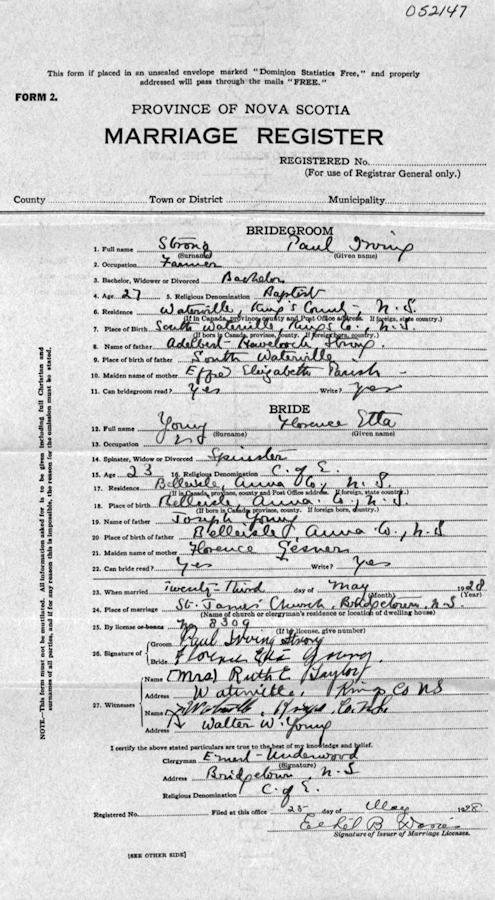 052147
This form if placed in an unsealed envelope marked "Dominion Statistics Free," and properly
addressed will pass through the mails "FREE."
FORM 2.
PROVINCE OF NOVA SCOTIA
MARRIAGE REGISTER
REGISTERED No.
(For use of Registrar General only.)
County Town or District Municipality
BRIDEGROOM
1. Full name Strong Paul Irving
(Surname) (Given name)
2. Occupation Farmer
3. Bachelor, Widower or Divorced Bachelor
4. Age 27 5. Religious Denomination Baptist
6. Residence Waterville, King's County N. S.
(If in Canada, province, county and Post Office address. If foreign, state country.)
7. Place of Birth South Waterville, Kings Co., N. S.
(If born in Canada, province, county. If foreign born, country.)
8. Name of father Adelbert Havelock Strong
9. Place of birth of father South Waterville
10. Maiden name of mother Effie Elizabeth Parish
11. Can bridegroom read? Yes Write? Yes
BRIDE
12. Full name Young Florence Etta
(Surname) (Given name)
13. Occupation
14. Spinster, Widow or Divorced Spinster
15. Age 23 16. Religious Denomination C. of E.
17. Residence Belleisle, Anna Co., N. S.
(If in Canada, province, county and Post Office address. If foreign, state country.)
18. Place of birth Belleisle, Anna. Co., N. S.
(If born in Canada, province, county. If foreign born, country.)
19. Name of father Joseph Young
20. Place of birth of father Belleisle, Anna Co., N. S
21. Maiden name of mother Florence Gesner
22. Can bride read? Yes Write? Yes
23. When married Twenty-Third day of May 1928
(Month) (Year)
24. Place of marriage St. James Church, Bridgetown, N. S
(Name of church or clergyman's residence or location of dwelling house)
25. By license or banns No 8309
(If by license, give number)
26. Signature of Groom Paul Irving Strong
Bride Florence Etta Young
27. Witnesses Name (Mrs) Ruth E Taylor
Address Waterville, Kings Co NS
Name
Address Walter W. Young
I certify the above stated particulars are true to the best of my knowledge and belief.
Clergyman Ernest Underwood
(Signature)
Address Bridgetown, N. S
Religious Denomination C. of E.
Registered No. Filed at this office 25 day of May 1928
Ethel B
Signature of Issuer of Marriage Licenses.
[SEE OTHER SIDE]
NOTE.—This form must not be mutilated. All information asked for is to be given including full Christian and
surnames of all parties, and if for any reason this is impossible, the reason for the omission must be stated.